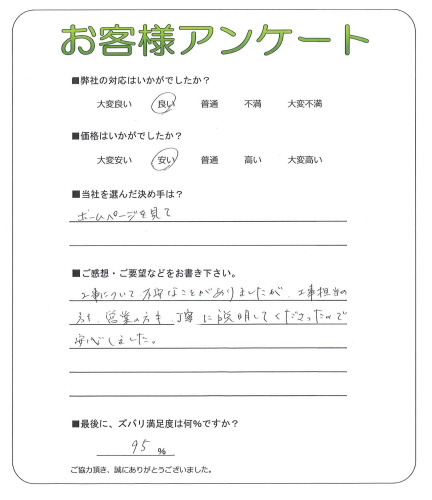 お客様アンケート
■弊社の対応はいかがでしたか?
大変良い 良い 普通 不満 大変不満
■価格はいかがでしたか?
大変安い 安い 普通 高い 大変高い
■当社を選んだ決め手は?
ホームページを見て
■ご感想・ご要望などをお書き下さい。
工事について不安なことがありましたが、工事担当の
方も、営業の方も、丁寧に説明してくださったので
安心しました。
■最後に、ズバリ満足度は何%ですか?
95 %
ご協力頂き、誠にありがとうございました。